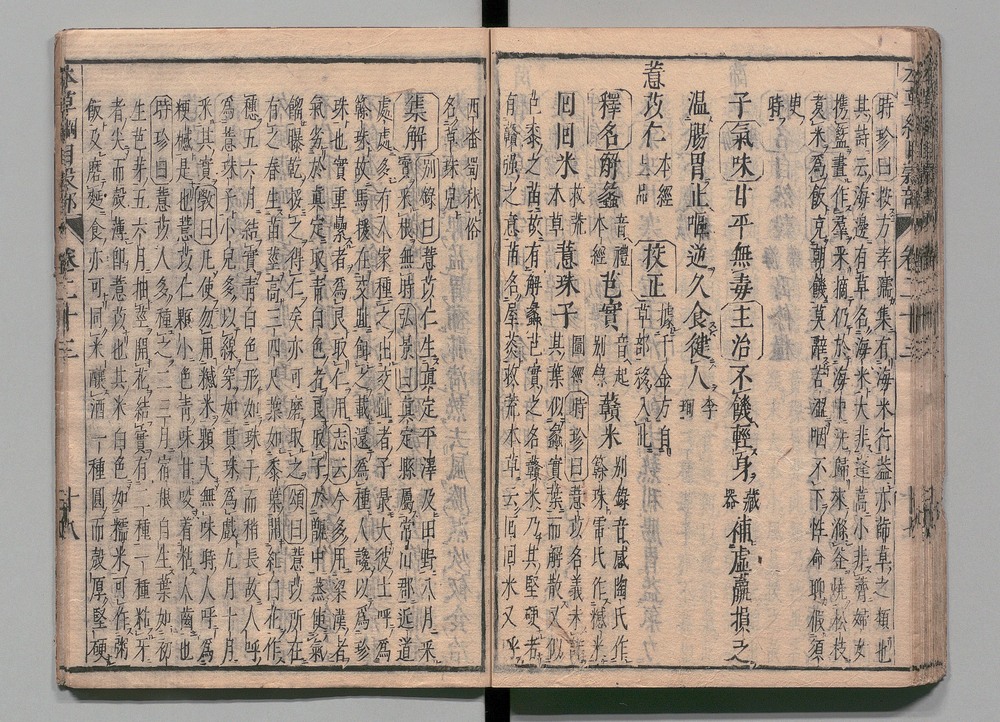 時珍曰按方孝孺集有海米行葢亦蒒草之類也
其詩云海邊有草名海米大非蓬蒿小非薺婦女
携籃晝作羣采摘仍於海中洗歸來滌釜燒松枝
煮米爲飯充朝饑莫辭苦澀咽不下性命聊假須
臾時
子氣味甘平無毒主治不饑輕身藏器補虛羸損乏
溫腸胃止嘔逆久食健人李珣
薏苡仁本經上品校正據千金方自草部移入此
釋名解蠡音禮本經芑實音起别錄贛米别錄音感陶氏作簳珠雷氏作䅟米
回回米救荒本草薏珠子圖經時珍曰薏苡名義未詳其葉似蠡實葉而解散又似
芑黍之苗故有解蠡芑實之名贛米乃其堅硬者
有贛强之意苗名屋菼救荒本草云回回米又呼
西番蜀秫俗
名草珠兒
集解别錄曰薏苡仁生真定平澤及田野八月采
實采根無時弘景曰真定縣屬常山郡近道
處處多有人家種之出交趾者子最大彼土呼爲
簳珠故馬援在交趾餌之載還爲種人讒以爲珍
珠也實重累者爲良取仁用志云今多用梁漢者
氣劣於真定取青白色者良取子於甑中蒸使氣
餾曝乾挼之得仁矣亦可磨取之頌曰薏苡所在
有之春生苗莖高三四尺葉如黍葉開紅白花作
穗五六月結實青白色形如珠子而稍長故人呼
爲薏珠子小兒多以線穿如貫珠爲戲九月十月
采其實斅曰凡使勿用䅟米顆大無味時人呼爲
粳䅟是也薏苡仁顆小色青味甘咬着粘人齒也
時珍曰薏苡人多種之二三月宿根自生葉如初
生芭茅五六月抽莖開花結實有二種一種粘牙
者尖而殼薄卽薏苡也其米白色如糯米可作粥
飯及磨麪食亦可同米釀酒一種圓而殼厚堅硬
本草綱目穀部 卷二十三 十八